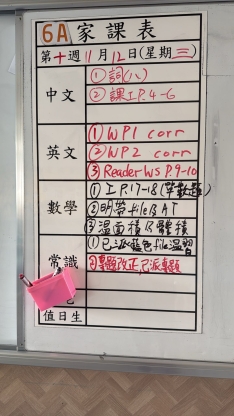 6A 家課表
第十週11月12日(星期三)
中文
①詞(八)
②課工P.4-6
英文
①WP1 corr
②WP2 corr
③Reader WS P.9-10
數學
①工P.17-18(單數題)
②明帶fileB AT
③溫面積及體積
常識
①已派藍色file溫習
②專題改正,已派專題
值日生